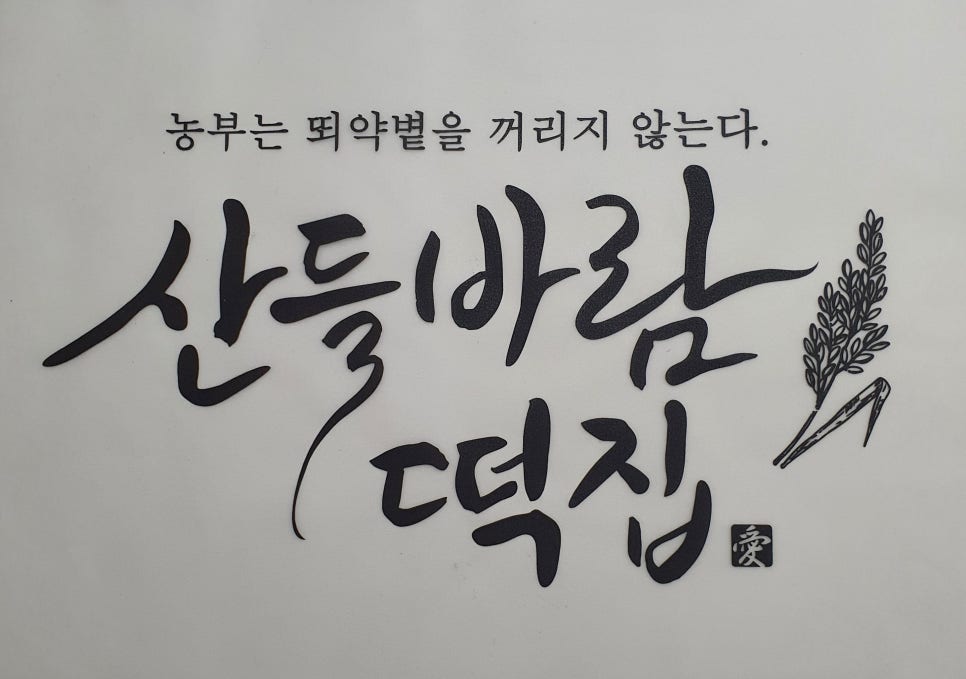 농부는 뙤약볕을 꺼리지 않는다.
산들바람
떡집
愛